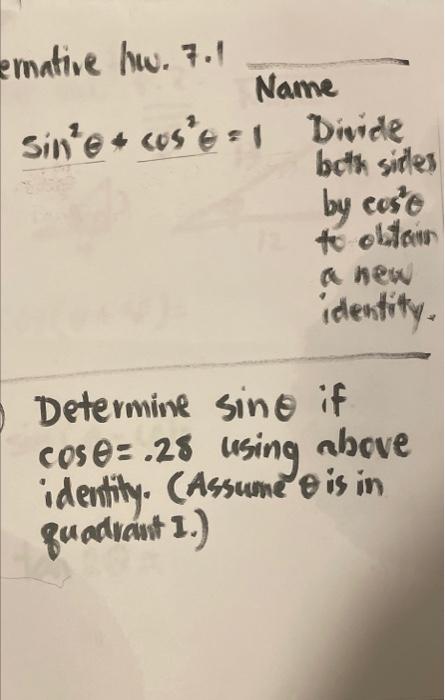 ernative hw. 7.1
Name
sin²θ + cos²θ = 1 Divide
both sides
by cos²θ
to obtain
a new
identity.
Determine sinθ if
cosθ = .28 using above
identity. (Assume θ is in
quadrant I.)